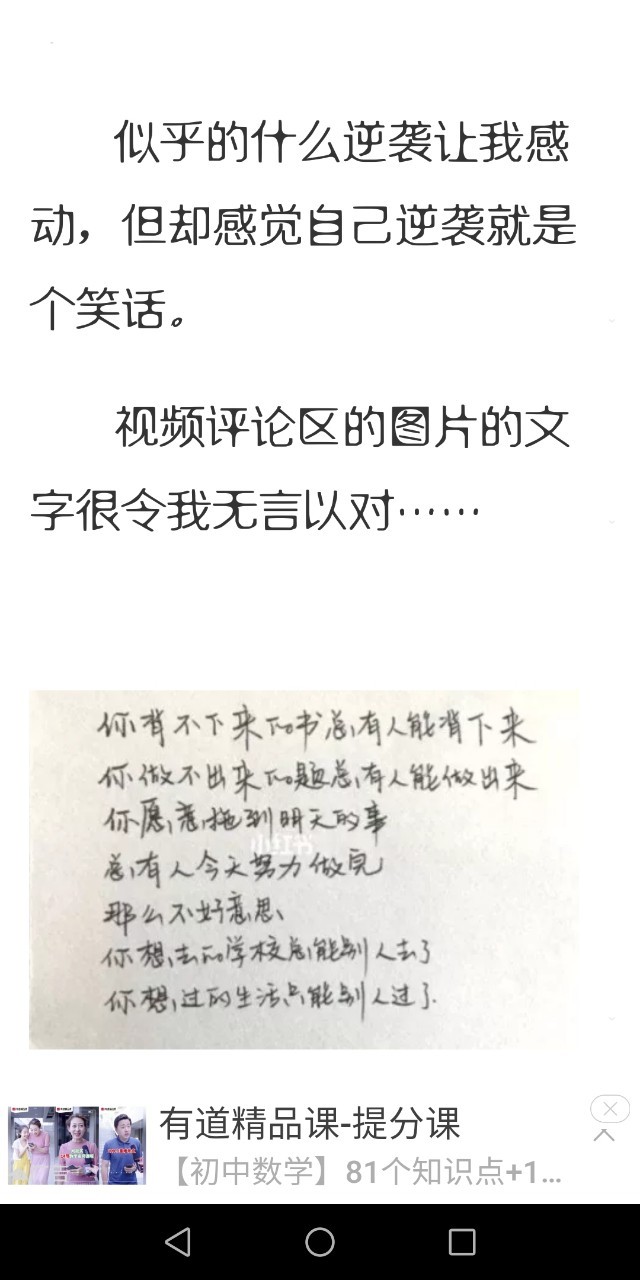 似乎的什么逆袭让我感
动，但却感觉自己逆袭就是
个笑话。
视频评论区的图片的文
字很令我无言以对……
你背不下来的书总有人能背下来
你做不出来的题总有人能做出来
你愿意拖到明天的事
总有人今天努力做完
那么不好意思
你想去的学校总能别人去了
你想过的生活只能别人过了.
小红书
有道精品课-提分课
【初中数学】81个知识点+1…